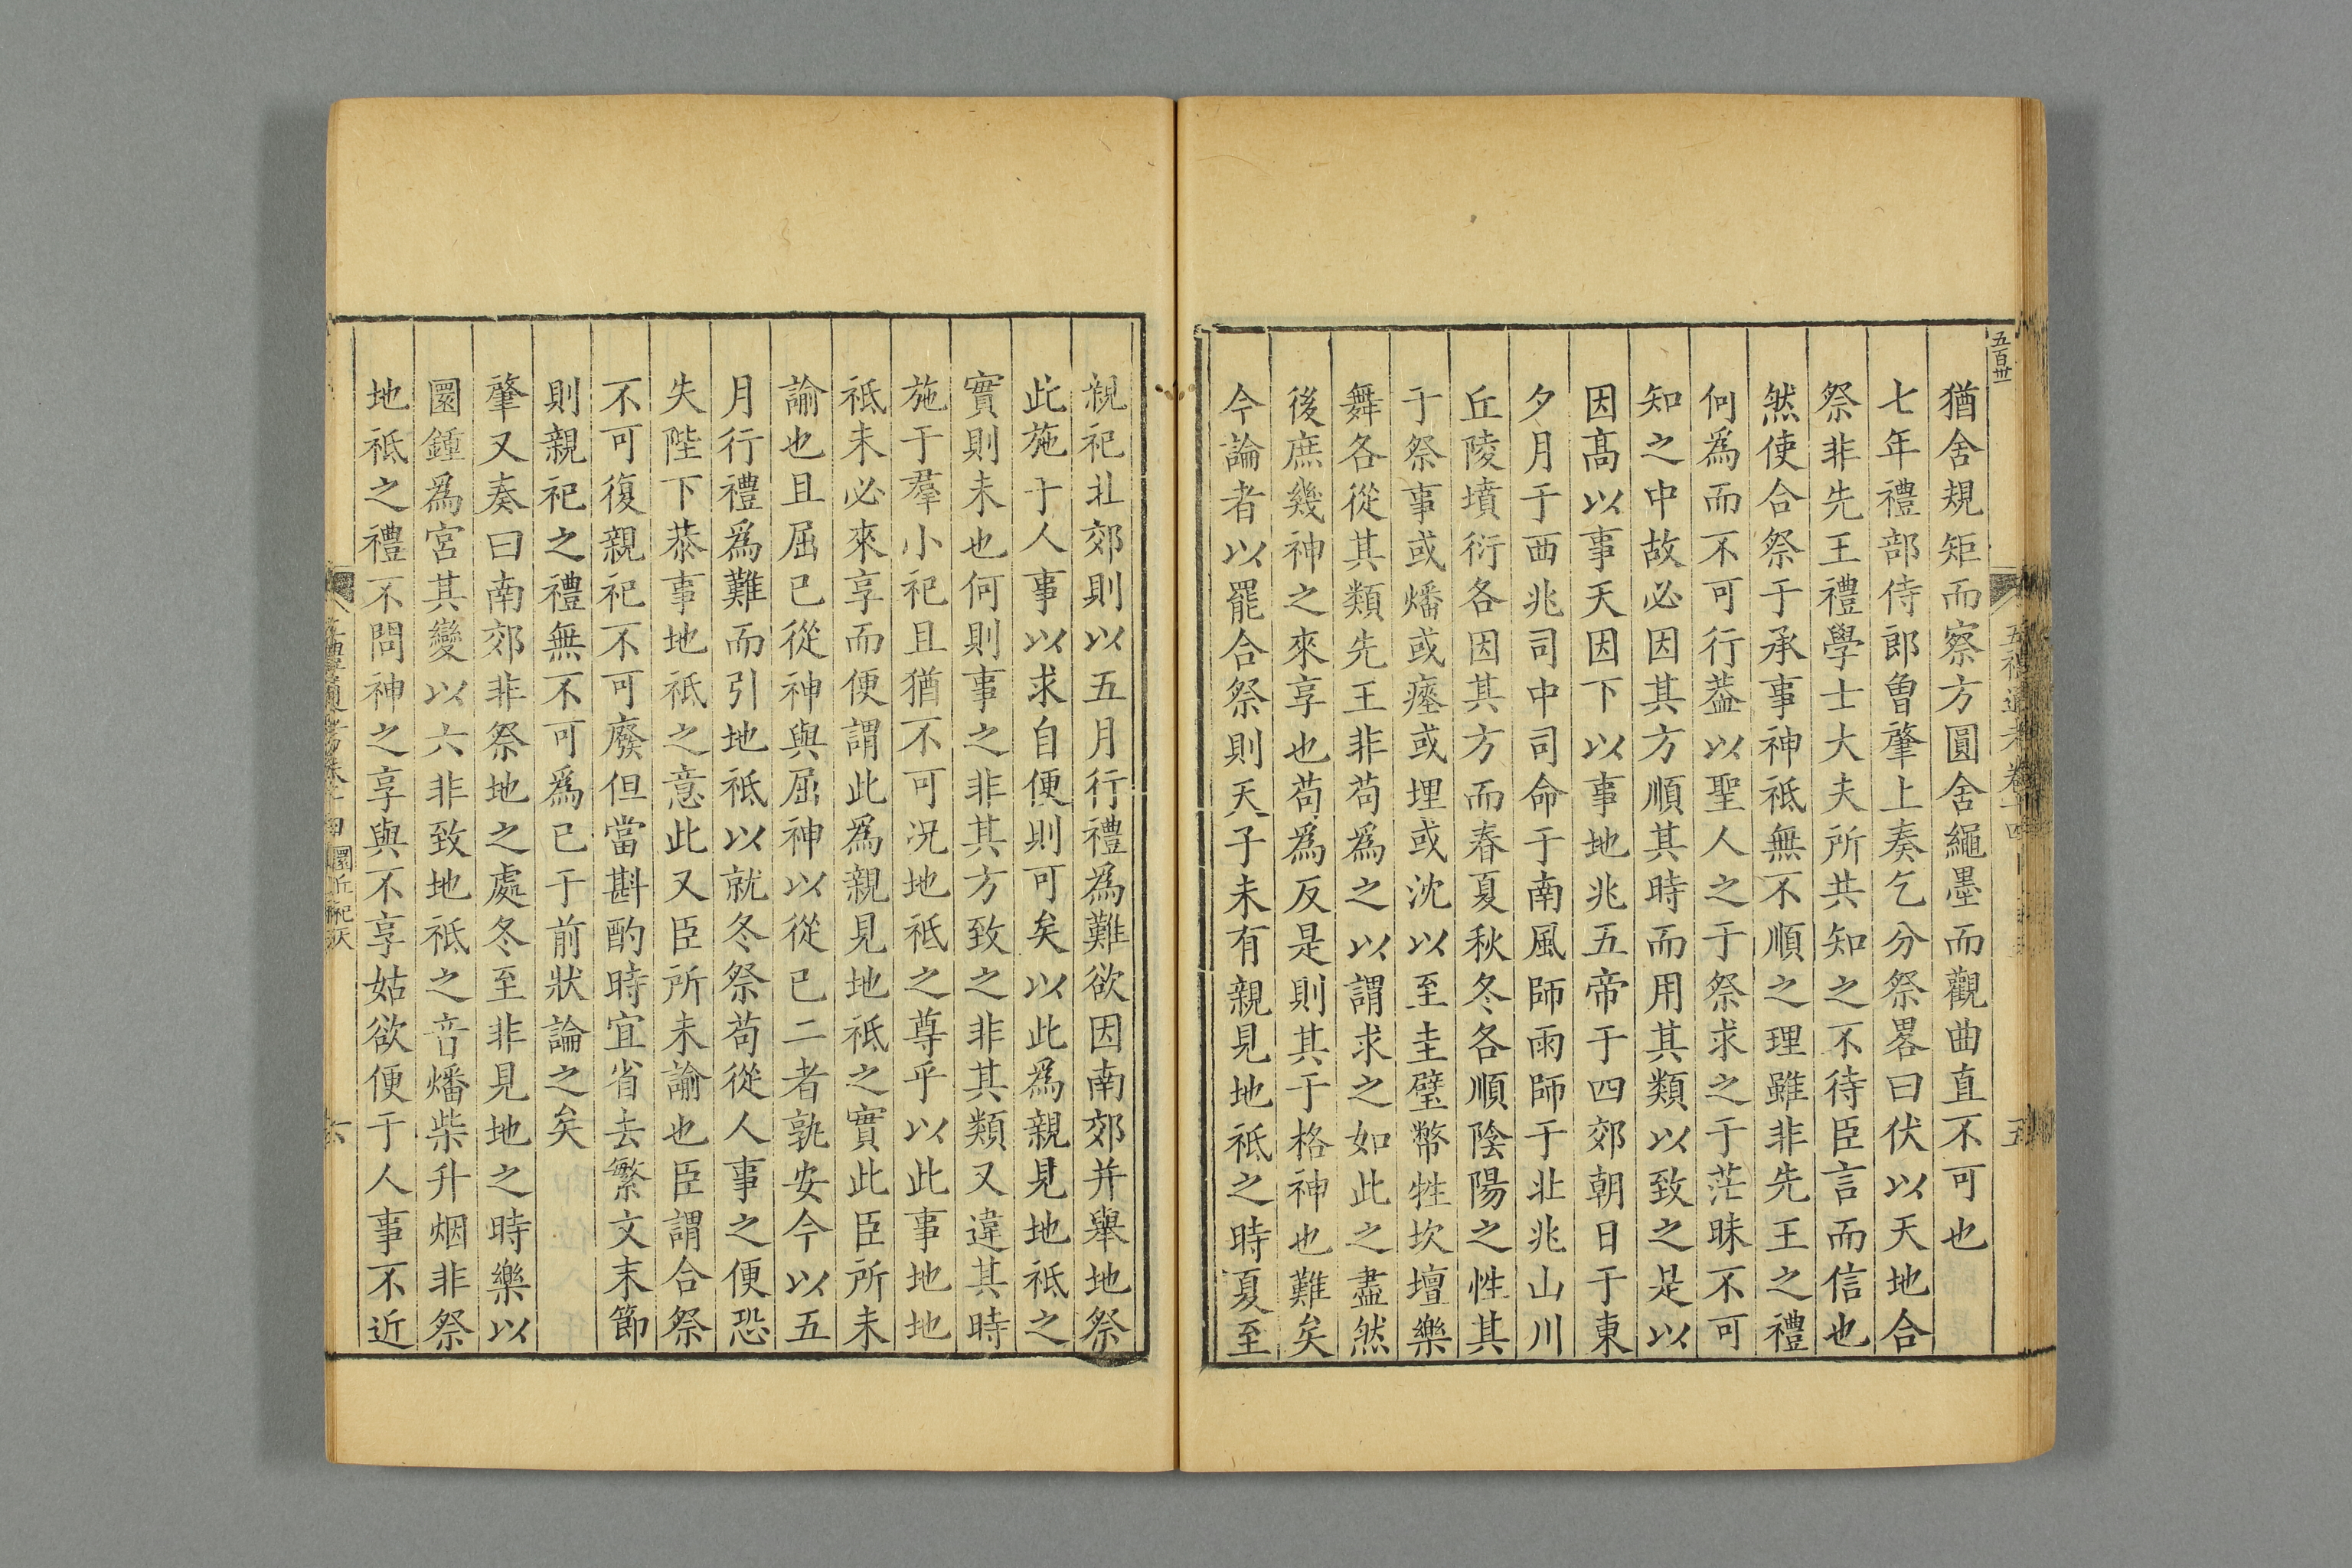 五百卅
五禮通考卷十四
五
猶舍規矩而察方圓舍繩墨而觀曲直不可也
七年禮部侍郎曾肇上奏乞分祭畧曰伏以天地合
祭非先王禮學士大夫所共知之不待臣言而信也
然使合祭于承事神祗無不順之理雖非先王之禮
何爲而不可行葢以聖人之于祭求之于茫昧不可
知之中故必因其方順其時而用其類以致之是以
因髙以事天因下以事地兆五帝于四郊朝日于東
夕月于西兆司中司命于南風師雨師于北兆山川
丘陵墳衍各因其方而春夏秋冬各順陰陽之性其
于祭事或燔或瘞或埋或沈以至圭璧幣牲坎壇樂
舞各從其類先王非苟爲之以謂求之如此之盡然
後庶幾神之來享也苟爲反是則其于格神也難矣
今論者以罷合祭則天子未有親見地祗之時夏至
親祀北郊則以五月行禮爲難欲因南郊并舉地祭
此施于人事以求自便則可矣以此爲親見地祗之
實則未也何則事之非其方致之非其類又違其時
施于羣小祀且猶不可况地祗之尊乎以此事地地
祗未必來享而便謂此爲親見地祗之實此臣所未
諭也且屈已從神與屈神以從已二者孰安今以五
月行禮爲難而引地祗以就冬祭苟從人事之便恐
失陛下恭事地祗之意此又臣所未諭也臣謂合祭
不可復親祀不可廢但當斟酌時宜省去繁文末節
則親祀之禮無不可爲已于前狀論之矣
肇又奏曰南郊非祭地之處冬至非見地之時樂以
圜鍾爲宮其變以六非致地祗之音燔柴升烟非祭
地祗之禮不問神之享與不享姑欲便于人事不近
圜丘祀天
六